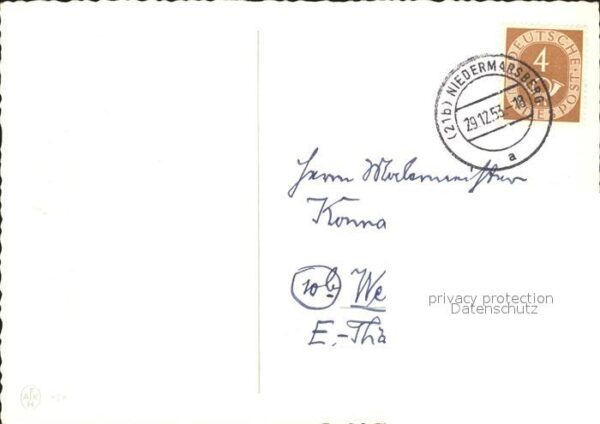 DEUTSCHE
4
BUNDESPOST
(21b) NIEDERMARSBERG
29.12.53.-18
a
Herrn Malermeister
Konra
10b We
privacy protection
Datenschutz
E.-Thä